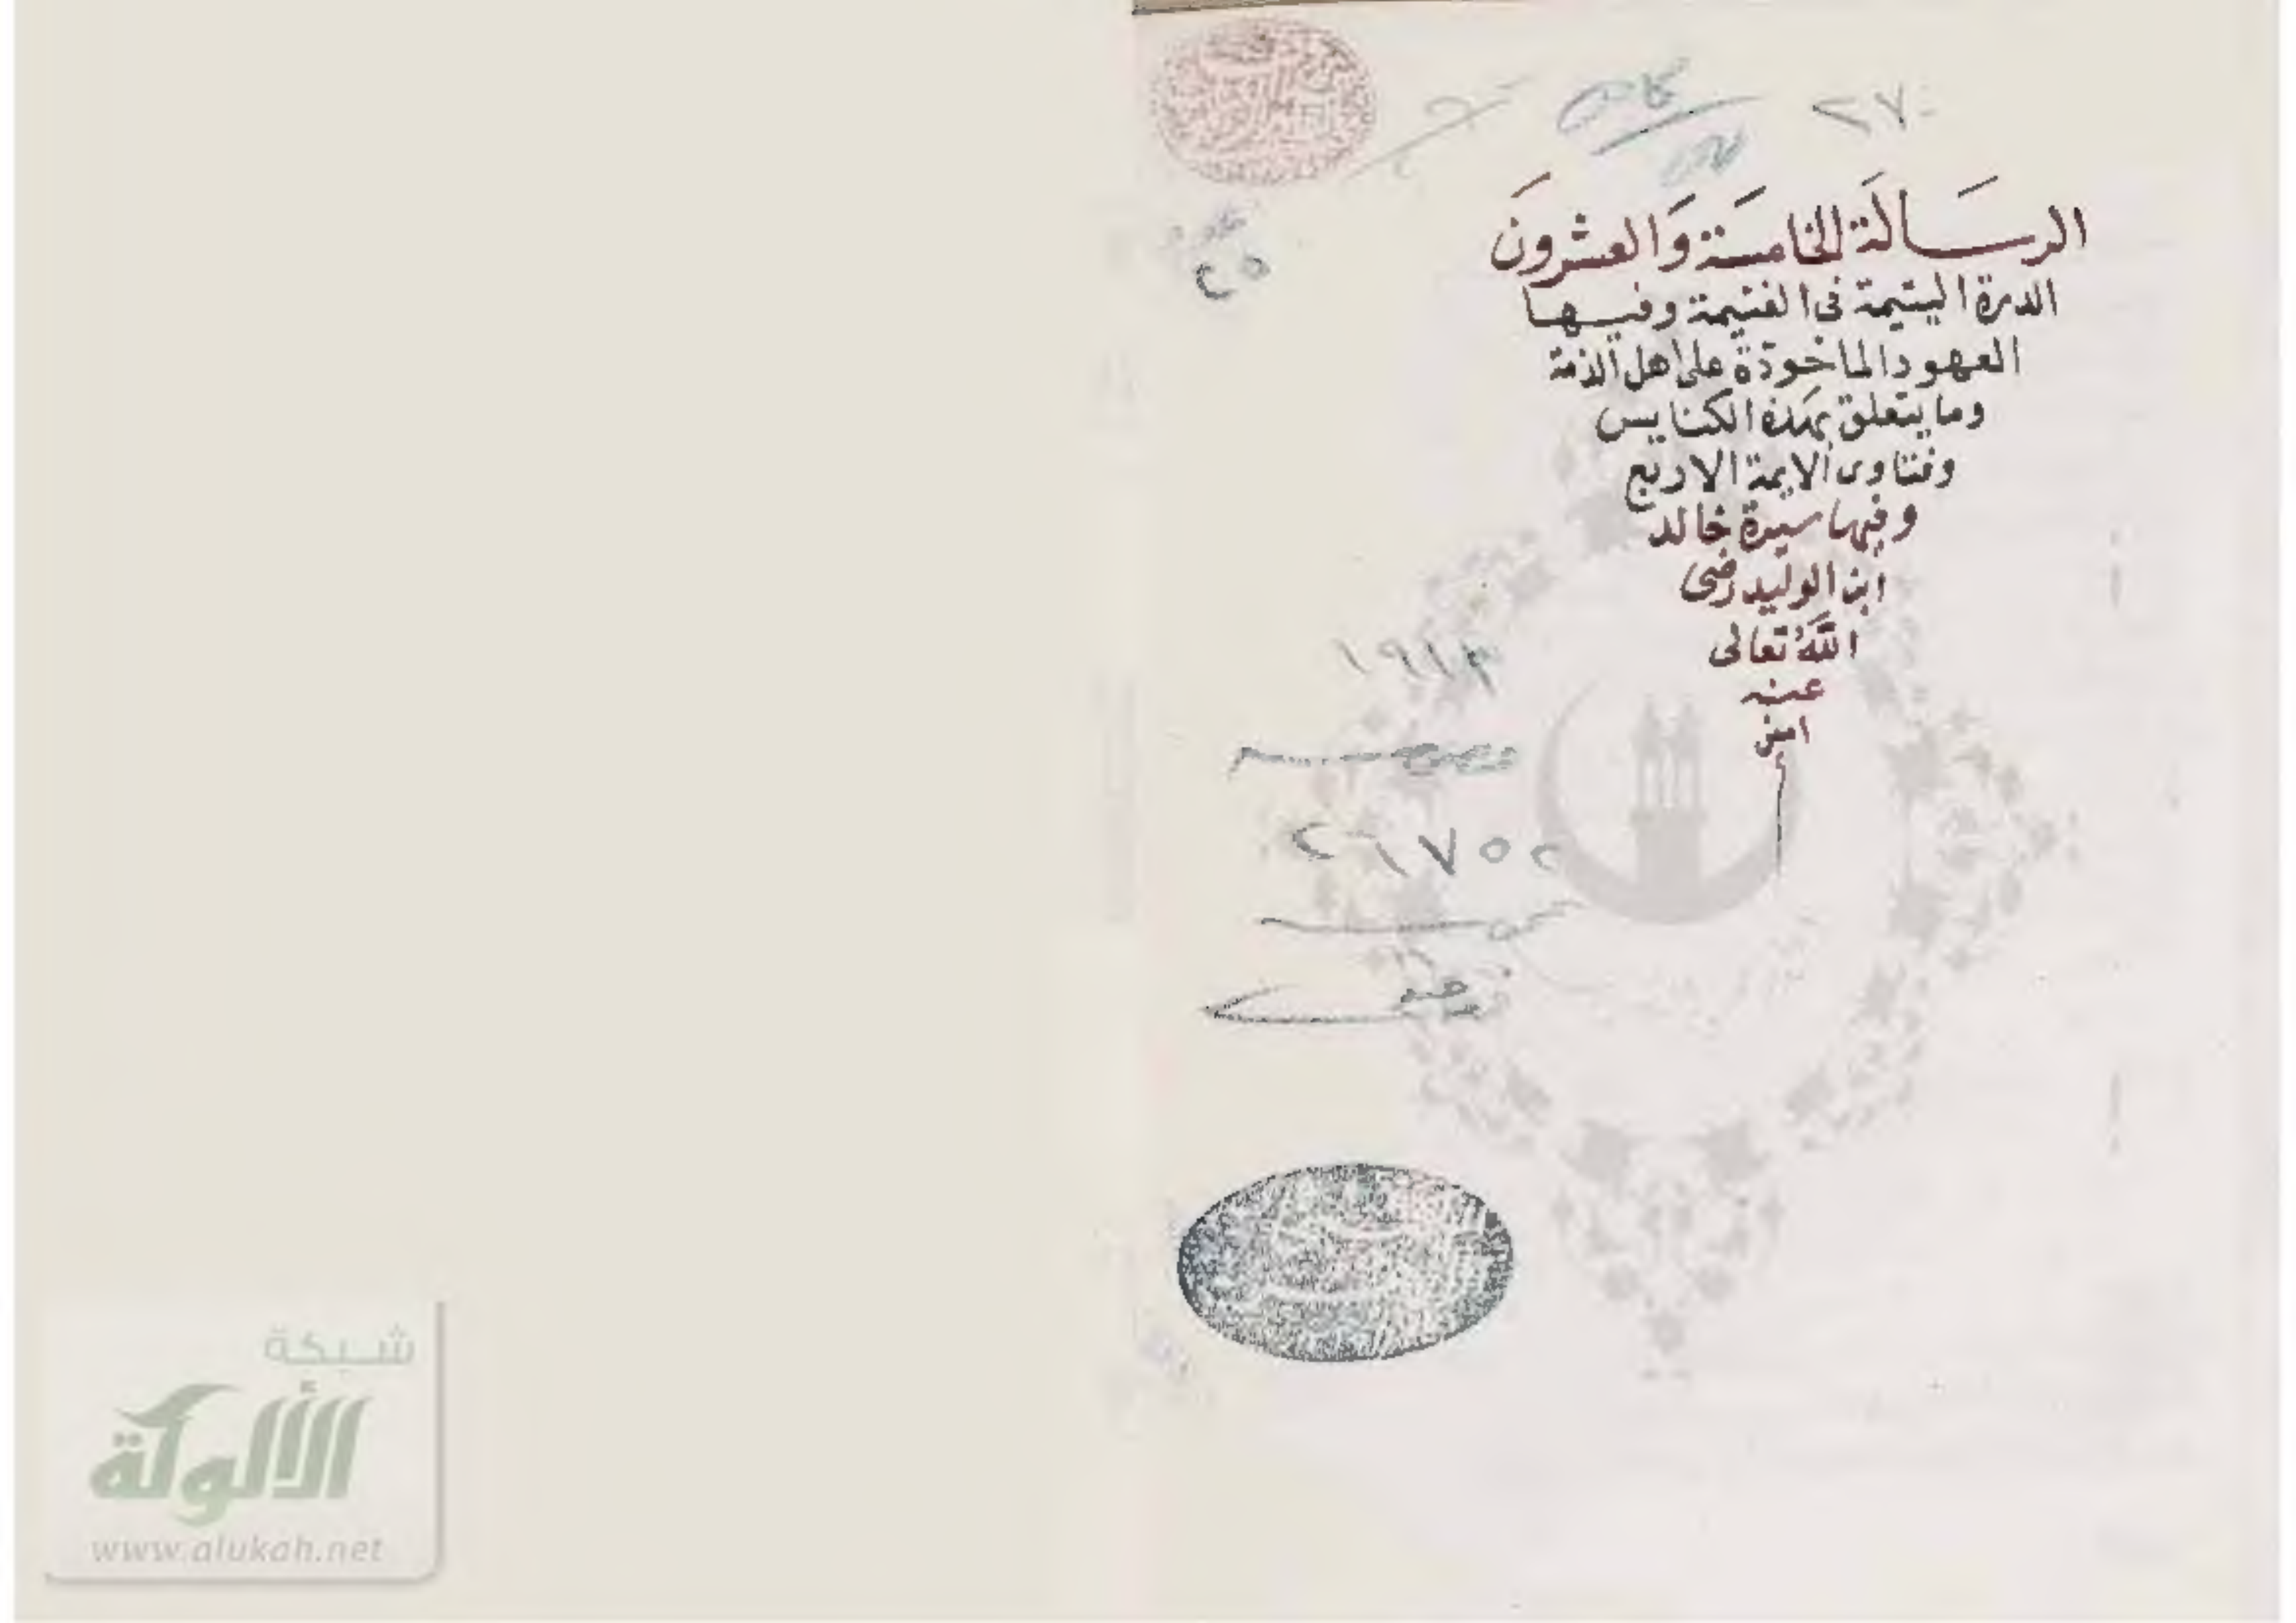 ٢٧٠
الرسَالَة الخامسَة وَالعشرونَ
الدرة اليتيمة فى الغنيمة وفيها
العهود الماخوذة على اهل الذمة
وما يتعلق بهذه الكنايس
وفتاوى الايمة الاربع
وفيها سيرة خالد
ابن الوليد رضى
اللهُ تعالى
عنه
امين
٢٥
١٩١٣
٢٦٧٥٢
شبكة
الألوكة
www.alukah.net